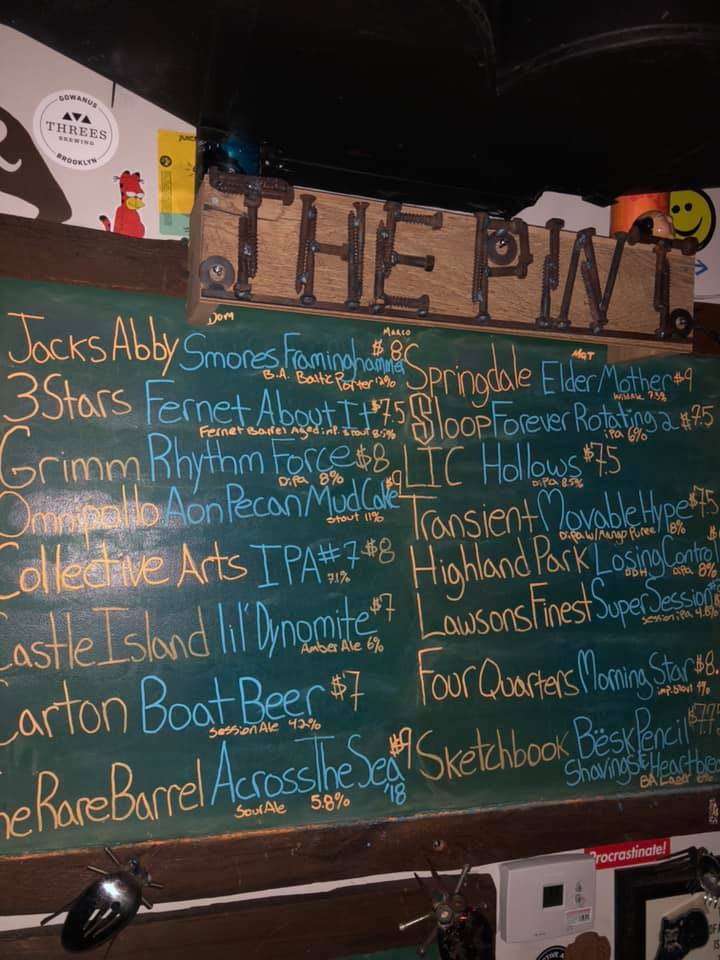 GOWANUS
THREES
BREWING
BROOKLYN
THE PINT
Dom
Jacks Abby Smores Framinghammer $8
B.A. Baltic Porter 12%
3Stars Fernet About It $7.5
Fernet Barrel Aged imp. stout 8.5%
Grimm Rhythm Force $8
Dipa 8%
Omnipollo Aon Pecan Mud Cake $9
stout 11%
Collective Arts IPA #7 $8
7.1%
Castle Island lil' Dynomite $7
Amber Ale 6%
Carton Boat Beer $7
session Ale 4.2%
The Rare Barrel Across The Sea '18 $9
Sour Ale 5.8%
Marco
Mat
Springdale Elder Mother $9
Wild Ale 7.5%
Sloop Forever Rotating 2 $7.5
ipa 6%
LIC Hollows $7.5
Dipa 8.5%
Transient Movable Hype $7.5
Dipa w/ Mango Puree 8%
Highland Park Losing Contro
DDH Dipa 8%
Lawsons Finest Super Session
session ipa 4.8%
Four Quarters Morning Star $8.
imp. stout 9%
Sketchbook Bësk Pencil
Shavings & Heartbre
BA Lager 6%
Procrastinate!